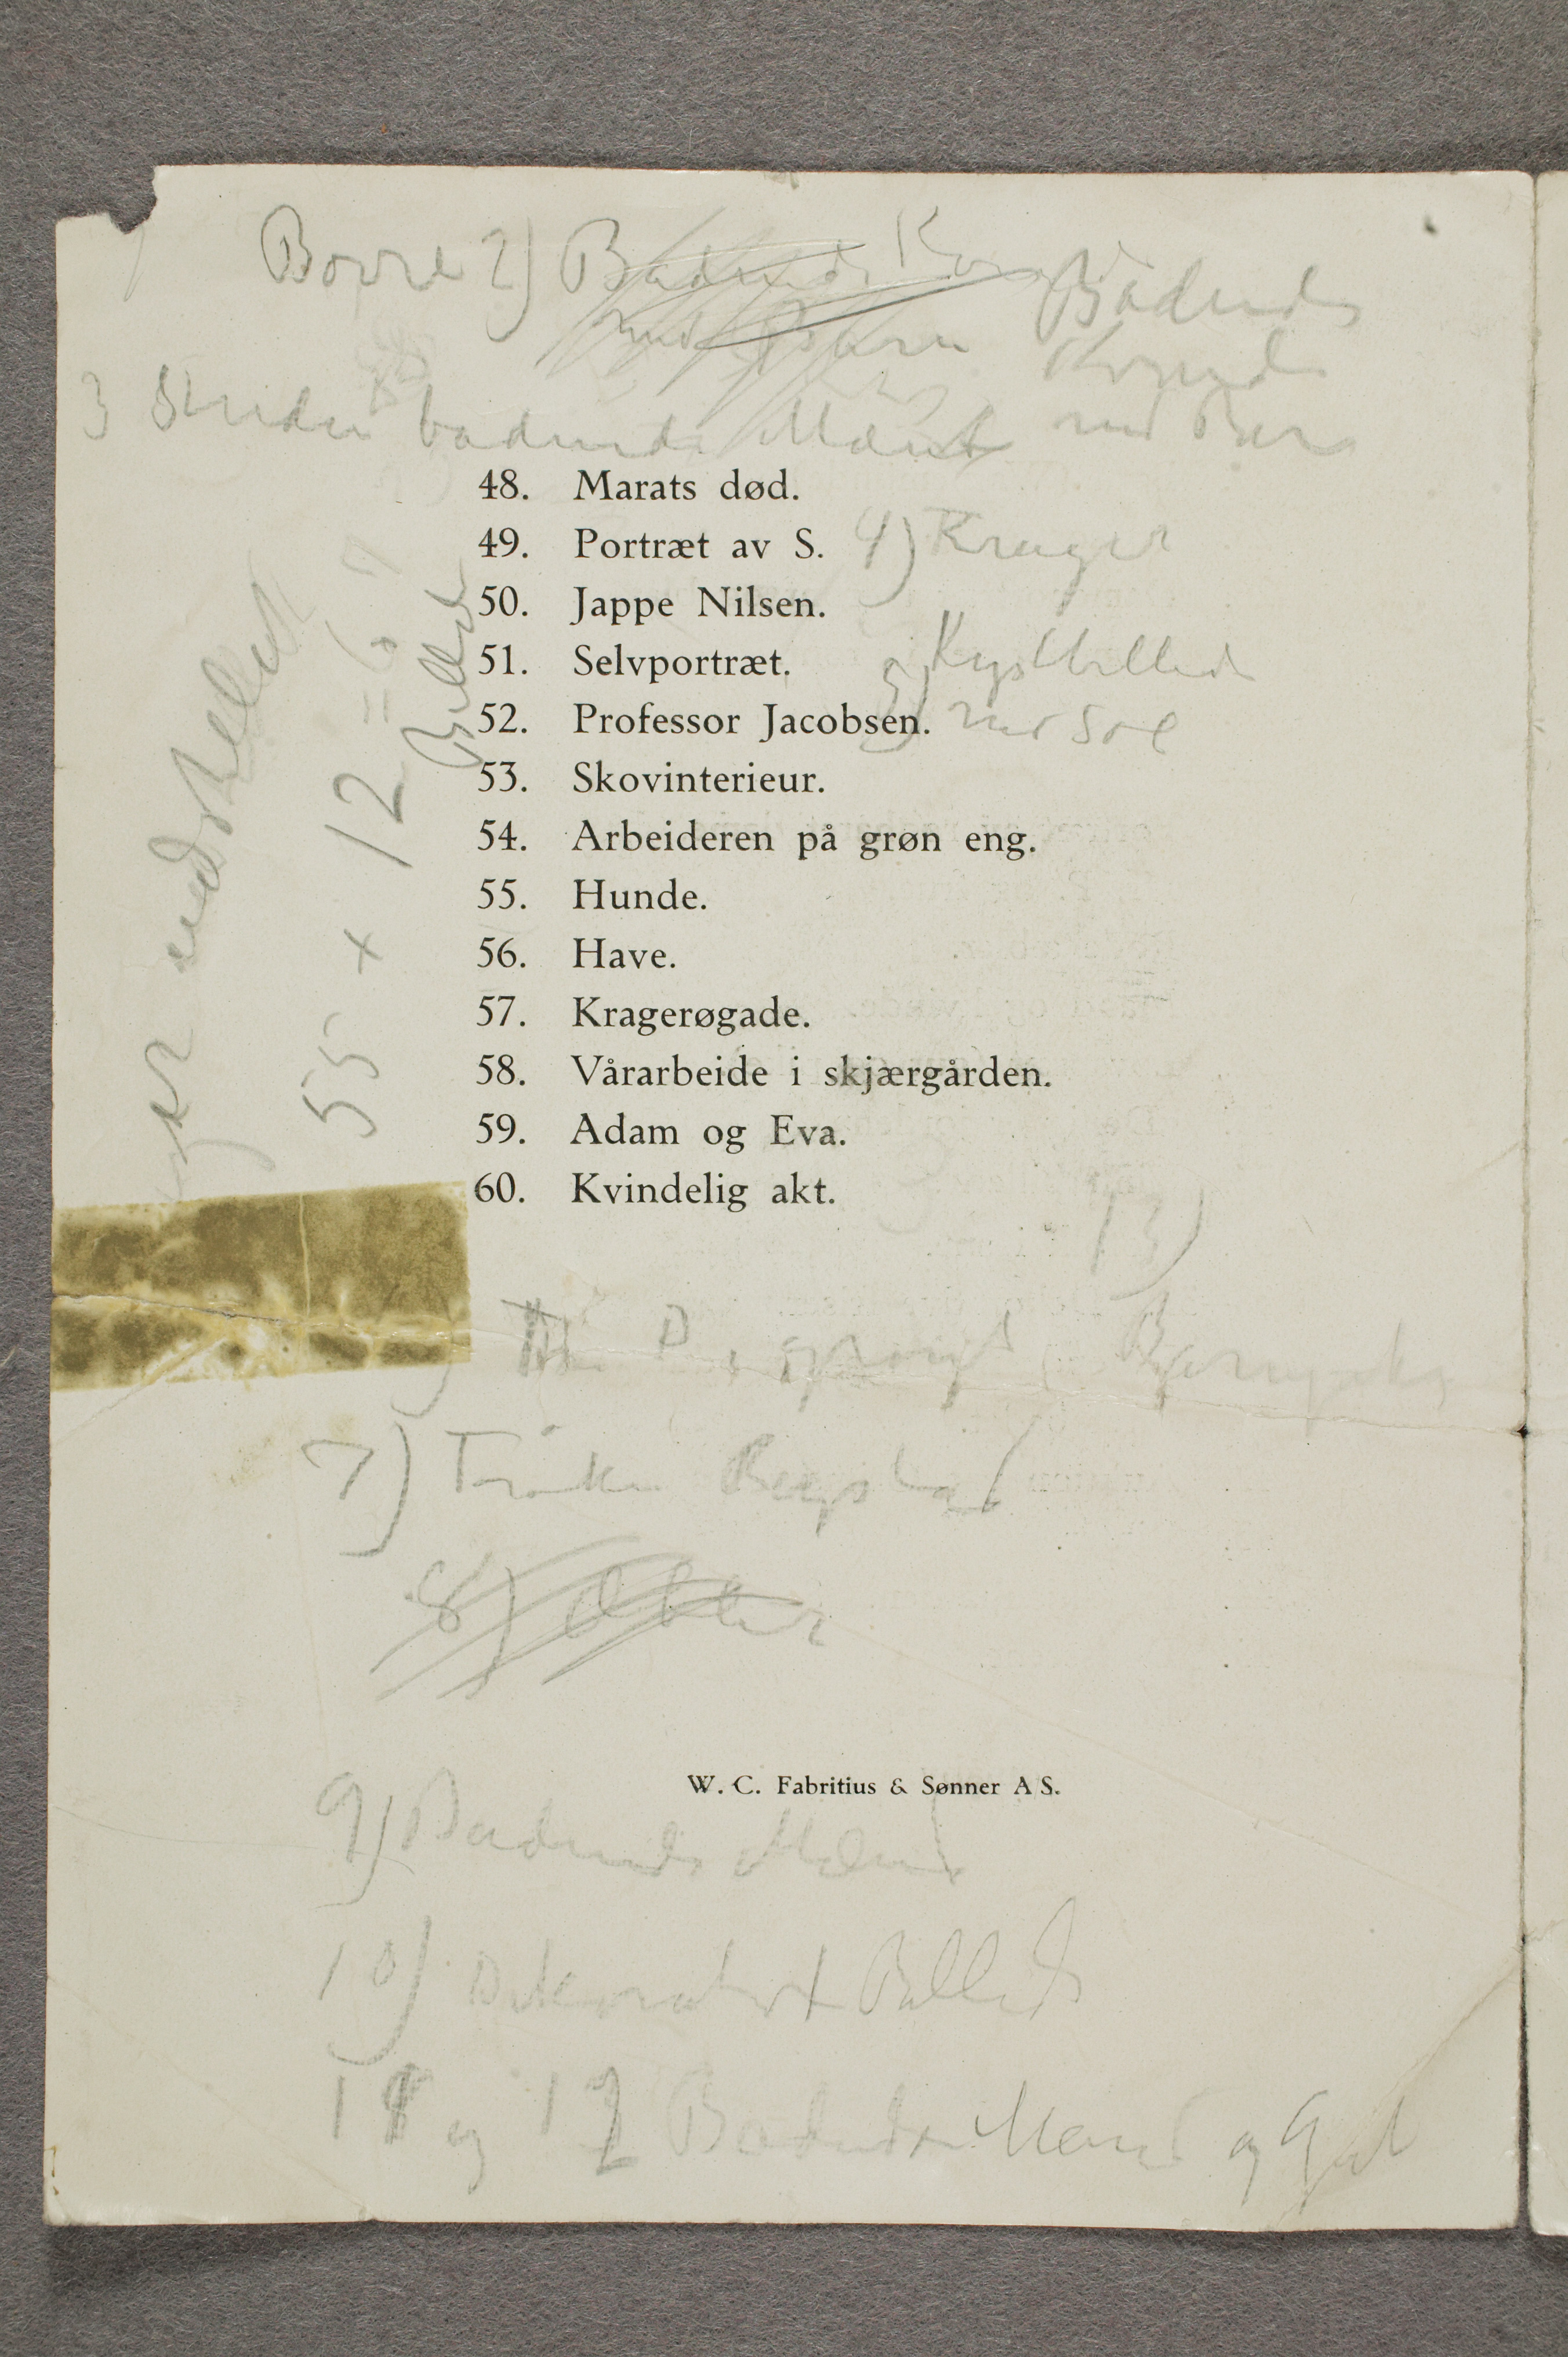 Borre 2) Badende
Badende
med Barn
3 badende Mænd
48. Marats død.
49. Portræt av S. 4) Krager
50. Jappe Nilsen.
51. Selvportræt. 5) Kystbillede
52. Professor Jacobsen. med Sol
53. Skovinterieur.
54. Arbeideren på grøn eng.
55. Hunde.
56. Have.
57. Kragerøgade.
58. Vårarbeide i skjærgården.
59. Adam og Eva.
60. Kvindelig akt.
55 + 12 = 67
Billeder
13)
7)
8) Æbler
W. C. Fabritius & Sønner A/S.
9) Badende Mænd
10) Dekorativt Billede
11 og 12 Badende Mænd og